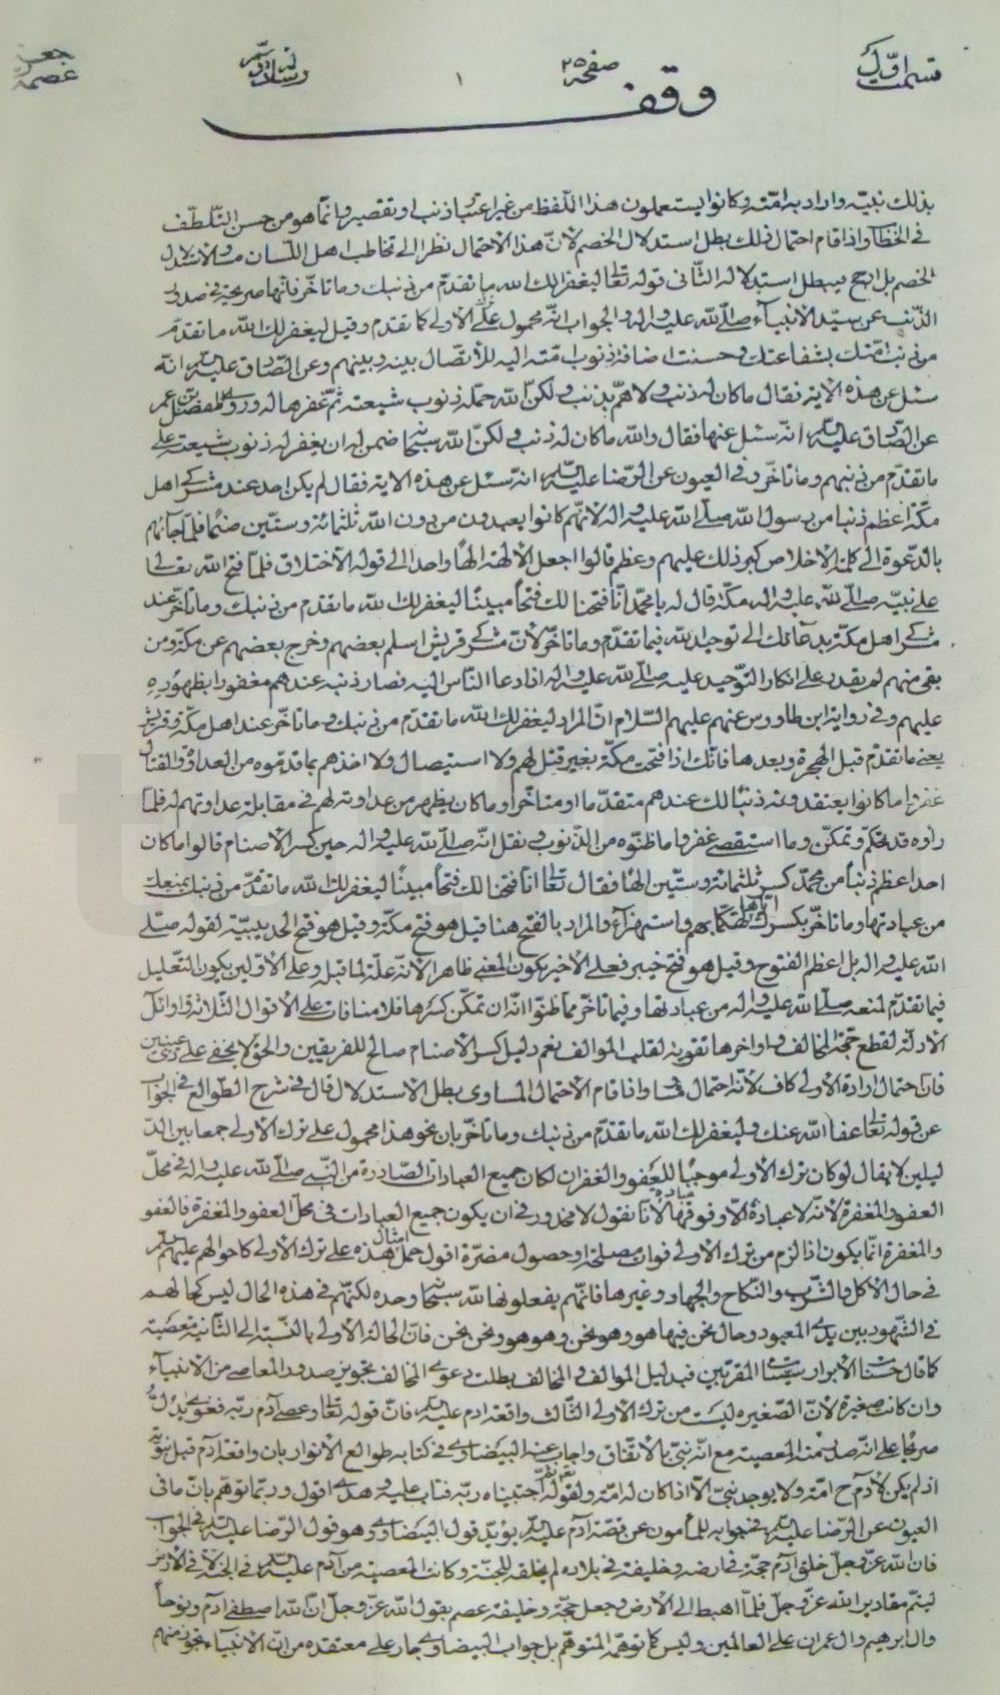 قسمت اول صفحه ٢٥ ١ رساله جعفر
وقف
بذلك نبيّه واراد به امّته وكانوا يستعملون هذا اللّفظ من غير اعتبار ذنب او تقصير وانّما هو من حسن التّلطّف
في الخطاب واذا قام احتمال ذلك بطل استدلال الخصم لانّ هذا الاحتمال نظرا الى تخاطب اهل اللسان مساو لاستدلال
الخصم بل ارجح فيبطل استدلاله الثّاني قوله تعالى ليغفر لك الله ما تقدّم من ذنبك وما تأخّر فانّها صريحة في صدور
الذّنب عن سيّد الانبياء صلّى الله عليه واله والجواب انّه محمول على ترك الاولى كما تقدم وقيل ليغفر لك الله ما تقدّم
من ذنب امّتك بشفاعتك وحسنت اضافة ذنوب امّته اليه للاتّصال بينه وبينهم وعن الصّادق عليه السلام انّه
سئل عن هذه الاية فقال ما كان له ذنب ولا همّ بذنب ولكنّ الله حمّله ذنوب شيعته ثمّ غفرها له وروى المفضل بن عمر
عن الصّادق عليه السلام انّه سئل عنها فقال والله ما كان له ذنب ولكنّ الله سبحانه ضمن له ان يغفر له ذنوب شيعة علي
ما تقدّم من ذنبهم وما تأخّر وفي العيون عن الرّضا عليه السلام انّه سئل عن هذه الاية فقال لم يكن احد عند مشركي اهل
مكّة اعظم ذنبا من رسول الله صلّى الله عليه واله لانّهم كانوا يعبدون من دون الله ثلثمائة وستّين صنما فلمّا جاءهم
بالدّعوة الى كلمة الاخلاص كبر ذلك عليهم وعظم قالوا اجعل الالهة الها واحدا الى قوله الّا اختلاق فلمّا فتح الله تعالى
على نبيّه صلّى الله عليه واله مكّة قال له يا محمّد انّا فتحنا لك فتحا مبينا ليغفر لك الله ما تقدم من ذنبك وما تأخّر عند
مشركي اهل مكّة بدعائك الى توحيد الله فيما تقدّم وما تأخّر لانّ مشركي قريش اسلم بعضهم وخرج بعضهم عن مكّة ومن
بقي منهم لم يقدر على انكار التّوحيد عليه صلّى الله عليه واله اذا دعا النّاس اليه فصار ذنبه عندهم مغفورا بظهوره
عليهم وفي رواية ابن طاوس عنهم عليهم السّلام انّ المراد ليغفر لك الله ما تقدّم من ذنبك وما تأخّر عند اهل مكّة وقريش
يعني ما تقدّم قبل الهجرة وبعدها فانّك اذا فتحت مكّة بغير قتل لهم ولا استيصال ولا اخذهم بما قدّموه من العداوة والقتال
غفروا ما كانوا يعتقدونه ذنبا لك عندهم متقدّما او متاخرا وما كان يظهر من عداوته لهم في مقابلة عداوتهم له فلمّا
راوه قد تحكّم وتمكّن وما استقصى غفروا ما ظنّوه من الذّنوب ونقل انّه صلّى الله عليه واله حين كسر الاصنام قالوا ما كان
احد اعظم ذنبا من محمّد كسر ثلثمائة وستّين الها فقال تعالى انا فتحنا لك فتحا مبينا ليغفر لك الله ما تقدّم من ذنبك بمنعك
من عبادتها وما تأخّر بكسرك ايّاها تهكّما بهم واستهزاء والمراد بالفتح هنا قيل هو فتح مكّة وقيل هو فتح الحديبيّة لقوله صلّى
الله عليه واله بل اعظم الفتوح وقيل هو فتح خيبر فعلى الاخير يكون المعنى ظاهرا لانّه علّة لما قبل وعلى الاوّلين يكون التّعليل
فيما تقدّم لمنعه صلّى الله عليه واله من عبادتها وفيما تأخّر مما ظنّوا انّه ان تمكّن كسرها فلا منافات على الاقوال الثّلاثة واوائل
الادلّة لقطع حجّة المخالف واواخرها تقوية لقلب الموالف نعم دليل كسر الاصنام صالح للفريقين والحقّ لا يخفى على ذي عينين
فان احتمال ارادة الاولى كاف لانّه احتمال مساو واذا قام الاحتمال المساوي بطل الاستدلال قال في شرح الطّوالع في الجواب
عن قوله تعالى عفا الله عنك وليغفر لك الله ما تقدّم من ذنبك وما تأخّر بان نحو هذا محمول على ترك الاولى جمعا بين الدّ
ليلين لا يقال لو كان ترك الاولى موجبا للعفو والغفران لكان جميع العبادات الصّادرة من النّبي صلّى الله عليه واله في محلّ
العفو والمغفرة لانّه لا عبادة الّا وفوقها عبادة لانّا نقول لا محذور في ان يكون جميع العبادات في محلّ العفو والمغفرة فالعفو
والمغفرة انّما يكون اذا لزم من ترك الاولى فوات مصلحة او حصول مضرّة اقول حمل امثال هذه على ترك الاولى كاحوالهم عليهم السلام
في حال الاكل والشّرب والنّكاح والجهاد وغيرها فانّهم يفعلونها لله سبحانه وحده لكنّهم في هذه الحال ليس كحالهم
في الشّهود بين يدي المعبود وحال نحن فيها هو وهو نحن وهو هو ونحن نحن فانّ الحالة الاولى بالنّسبة الى الثّانية معصية
كما قال حسنات الابرار سيّئات المقرّبين فبدليل الموالف والمخالف بطلت دعوى المخالف بتجويز صدور المعاصي من الانبياء
وان كانت صغيرة لانّ الصّغيرة ليست من ترك الاولى الثّالث واقعة ادم عليه السلام فانّ قوله تعالى وعصى آدم ربّه فغوى يدلّ
صريحا على انّه صدر منه المعصية مع انّه نبيّ بالاتّفاق واجاب عنه البيضاوي في كتابه طوالع الانوار بان واقعة آدم قبل نبوّته
اذ لم يكن لادم ح امّة ولا يوجد نبيّ الّا اذا كان له امّة ولقوله تعالى ثمّ اجتبيه ربّه فتاب عليه وهدى اقول وربّما توهّم بانّ ما في
العيون عن الرّضا عليه السلام في جوابه للمأمون عن قصّة آدم عليه السلام يؤيّد قول البيضاوي وهو قول الرّضا عليه السلام في الجواب
فان الله عزّ وجلّ خلق آدم حجّة في ارضه وخليفة في بلاده لم يخلقه للجنّة وكانت المعصية من آدم عليه السلام في الجنّة لا في الارض
ليتمّ مقادير الله عزّ وجلّ فلمّا اهبط الى الارض وجعل حجّة وخليفة عصم بقول الله عزّ وجلّ انّ الله اصطفى آدم ونوحا
وال ابرهيم وال عمران على العالمين وليس كما توهّمه المتوهّم بل جواب البيضاوي جار على معتقده من انّ الانبياء يجوز منهم